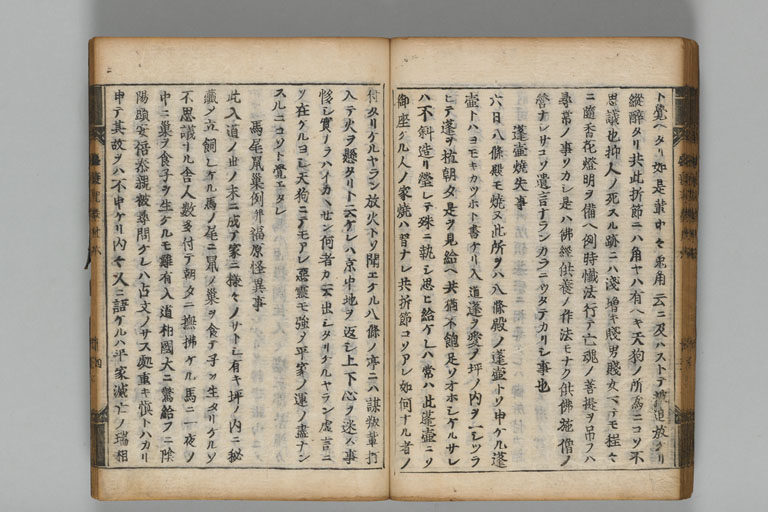 ト覺ヘタリ如是輩中々東角云ニ及ハストテ被追放ケリ
縱醉タリ共此折節ニハ角ヤハ有ヘキ天狗ノ所為ニコソ不
思議也抑人ノ死スル跡ニハ淺増キ賤男賤女マテモ程々
ニ隨香花燈明ヲ備ヘ例時懺法行テ亡魂ノ菩提ヲ吊フハ
尋常ノ事ソカシ是ハ佛經供養ノ作法モナク供佛施僧ノ
營ナレサコソ遺言ナランカラニウタテカリシ事也
蓬壺燒失事
六日八條殿モ燒ヌ此所ヲハ八條殿ノ蓬壺トソ申ケル蓬
壺トハヨモキカツホト書ケリ入道蓬ヲ愛テ坪ノ内ヲ一シツラ
ヒテ蓬ヲ植朝夕是ヲ見給ヘ共猶不飽足ソオホシケルサレ
ハ不斜造リ瑩レテ殊ニ執シ思ヒ給ケレハ常ハ此蓬壺ニソ
御座ケル人ノ家燒ハ習ナレ共折節コソアレ如何ナル者ノ
付タリケルヤラン放火トソ聞エケル八條ノ亭ニハ謀叛輩打
入テ火ヲ懸タリト云ケレハ京中地ヲ返シ上下心ヲ迷ス事
恠シ實ナラハイカヽセン何者カ云出シタリケルヤラン虚言ニ
ソ在ケルヨシ天狗ニテモアレ惡靈モ強ク平家ノ運ノ盡ナン
スルニコソト覺エタレ
馬尾鼠巢例并福原怪異事
此入道ノ世ノ末ニ成テ家ニ樣々ノサトシ有キ坪ノ内ニ秘
藏ノ立飼レケル馬ノ尾ニ鼠ノ巢ヲ食テ子ヲ生タリケルソ
不思議ナル舎人數多付テ朝夕ニ撫拂ケル馬ニ一夜ノ
中ニ巢ヲ食子ヲ生ケルモ難有入道相國大ニ驚給フニ陰
陽頭安倍泰親被尋問ケレハ占文ノサス處重キ愼トハカリ
申テ其故ヲハ不申ケリ内々人ニ語ケルハ平家滅亡ノ瑞相